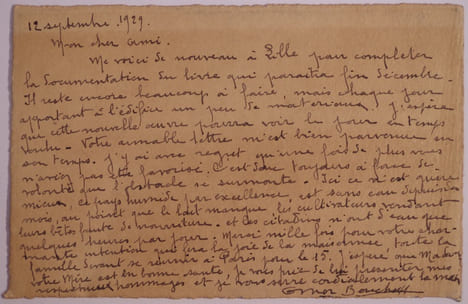 12 septembre, 1929.
Mon cher ami.
Me voici de nouveau à Lille pour compléter
la documentation du livre qui paraîtra fin décembre.
Il reste encore beaucoup à faire, mais chaque jour
apportant à l'édifice un peu de matériaux, j'espère
que cette nouvelle œuvre pourra voir le jour en temps
voulu. Votre aimable lettre m'est bien parvenue en
son temps. J'y ai avec regret qu'une fois de plus vous
n'aviez pas été favorisé. C'est donc toujours à force de
volonté que l'obstacle se surmonte. Ici ce n'est guère
mieux, ce pays humide par excellence est sans eau depuis
mois, au point que le lait manque, les cultivateurs vendant
leurs bêtes faute de nourriture. et les citadins n'ont d'eau que
quelques heures par jour. Merci mille fois pour votre char-
mante intention qui fera la joie de la maisonnée toute la
famille devant se réunir à Paris pour le 15. J'espère que Madame
votre Mère est en bonne santé, je vous prie de lui présenter mes
respectueux hommages et je vous serre cordialement la main